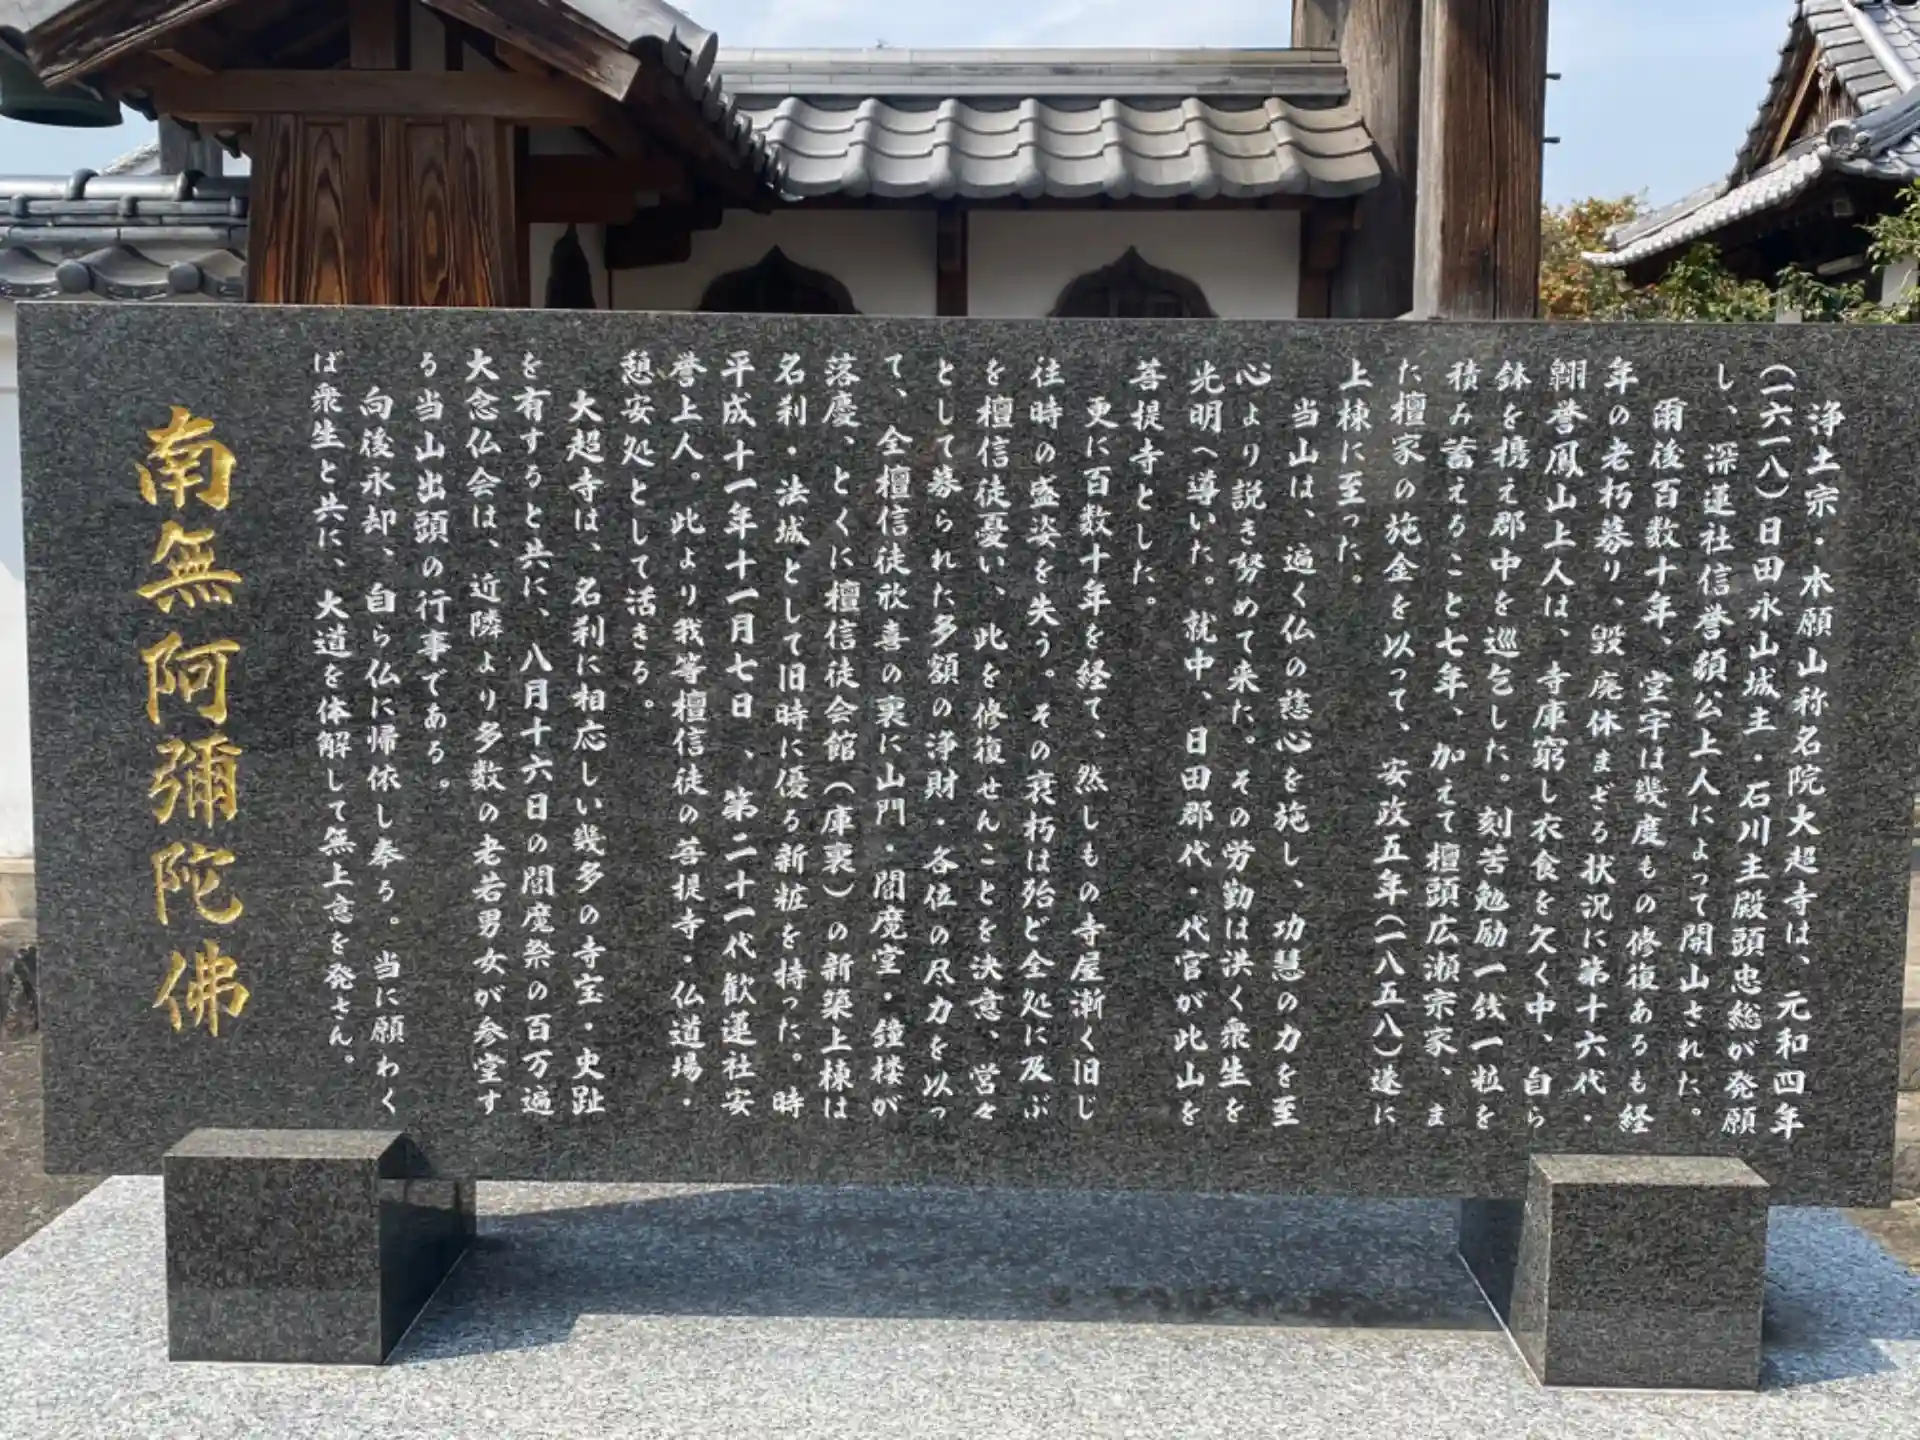 浄土宗・本願山称名院大超寺は、元和四年
(一六一八)日田永山城主・石川主殿頭忠総が発願
し、深蓮社信誉頤公上人によって開山された。
爾後百数十年、堂宇は幾度もの修復あるも経
年の老朽募り、毀廃休まざる状況に第十六代・
翺誉鳳山上人は、寺庫窮し衣食を欠く中、自ら
鉢を携え郡中を巡乞した。刻苦勉励一銭一粒を
積み蓄えること七年、加えて檀頭広瀬宗家、ま
た檀家の施金を以って、安政五年(一八五八)遂に
上棟に至った。
当山は、遍く仏の慈心を施し、功慧の力を至
心より説き努めて来た。その労勤は洪く衆生を
光明へ導いた。就中、日田郡代・代官が此山を
菩提寺とした。
更に百数十年を経て、然しもの寺屋漸く旧じ
往時の盛姿を失う。その衰朽は殆ど全処に及ぶ
を檀信徒憂い、此を修復せんことを決意、営々
として募られた多額の浄財・各位の尽力を以っ
て、全檀信徒欣喜の裏に山門・閻魔堂・鐘楼が
落慶、とくに檀信徒会館(庫裏)の新築上棟は
名刹・法城として旧時に優る新粧を持った。時
平成十一年十一月七日、第二十一代歓蓮社安
誉上人。此より我等檀信徒の菩提寺・仏道場・
憩安処として活きる。
大超寺は、名刹に相応しい幾多の寺宝・史趾
を有すると共に、八月十六日の閻魔祭の百万遍
大念仏会は、近隣より多数の老若男女が参堂す
る当山出頭の行事である。
向後永却、自ら仏に帰依し奉る。当に願わく
ば衆生と共に、大道を体解して無上意を発さん。
南無阿彌陀佛